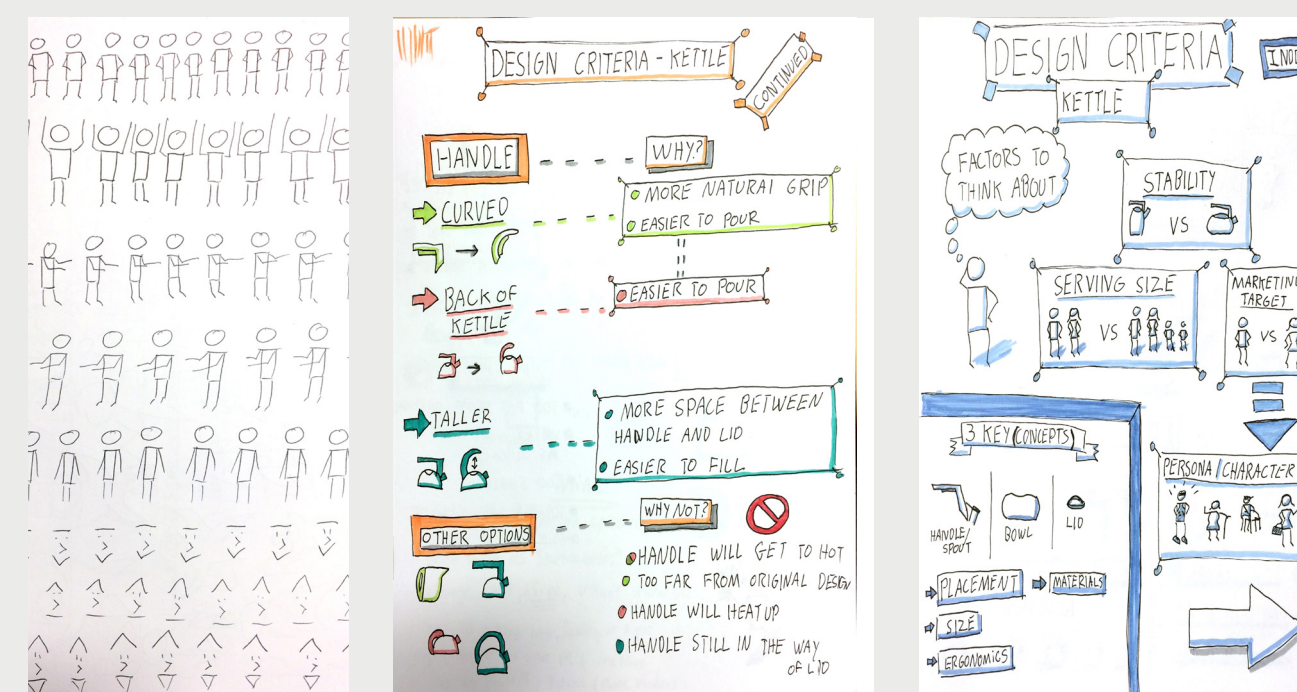 DESIGN CRITERIA - KETTLE
CONTINUED
HANDLE
WHY?
CURVED
• MORE NATURAL GRIP
• EASIER TO POUR
BACK OF
KETTLE
• EASIER TO POUR
TALLER
• MORE SPACE BETWEEN
HANDLE AND LID
• EASIER TO FILL
OTHER OPTIONS
WHY NOT?
• HANDLE WILL GET TO HOT
• TOO FAR FROM ORIGINAL DESIGN
• HANDLE WILL HEAT UP
• HANDLE STILL IN THE WAY
OF LID
DESIGN CRITERIA
KETTLE
FACTORS TO
THINK ABOUT
STABILITY
VS
SERVING SIZE
VS
MARKETING
TARGET
VS
3 KEY (CONCEPTS)
HANDLE/
SPOUT
BOWL
LID
PLACEMENT
MATERIALS
SIZE
ERGONOMICS
PERSONA/CHARACTER